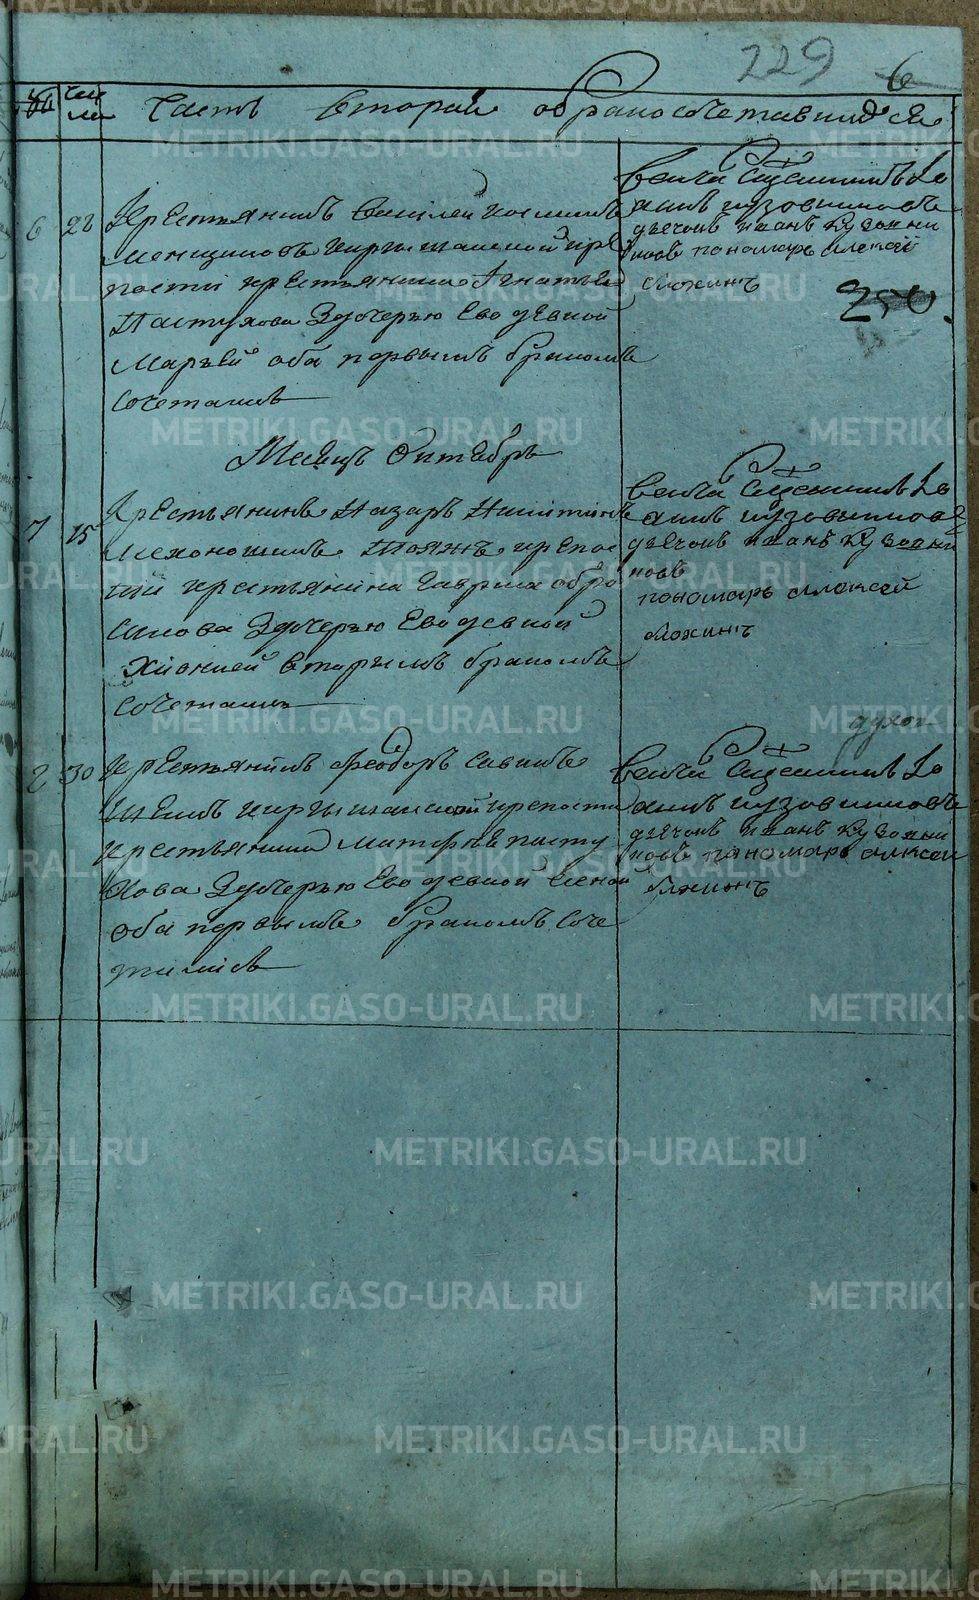 229 6
№ чи
сла Часть вторая о бракосочетавшихся
6 28 Крестьянинъ Василей Козминъ
Менщиковъ Киргишанской кре
пости крестьянина Игнатья
Пастухова Здочерью Ево девкой
Марьей оба первымъ бракомъ
сочетались
венча Священникъ Іо
аннъ Пузовиковъ
дьячокъ Иванъ Кузовни
ковъ пономарь Алексей
250.
Месяцъ Октябрь
7 15 Крестьянинъ Назаръ Никитинъ
Мехоношинъ Тояжъ крепос
ти крестьянина Гаврила
Здочерью Ево девкой
вторымъ бракомъ
сочетались
венча Священникъ Іо
аннъ Пузовиковъ
дьячокъ Иванъ Кузовни
ковъ
пономарь Алексей
духов
2 30 Крестьянинъ Феодоръ Савинъ
Киргишанской крепости
крестьянина Матфѣя Пасту
хова Здочерью Ево девкой Еленой
оба первымъ бракомъ соче
тались
венча Священникъ Іо
аннъ Пузовиковъ
дьячокъ Иванъ Кузовни
ковъ пономарь Алексей
METRIKI.GASO-URAL.RU